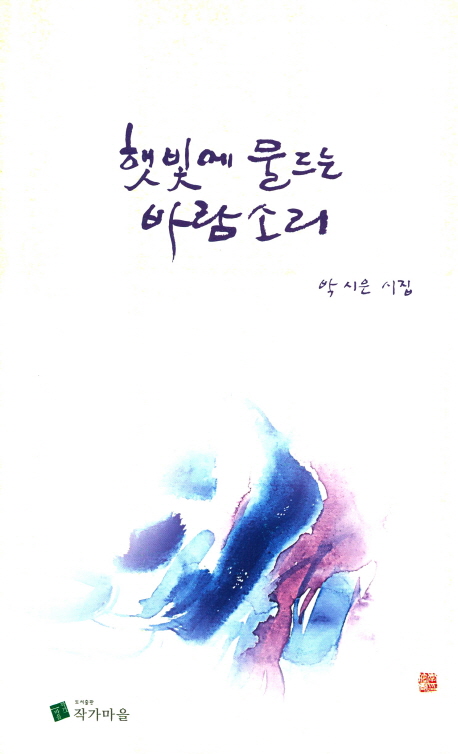 햇빛에 물드는
바람소리
박 시은 시집
도서출판
작가마을